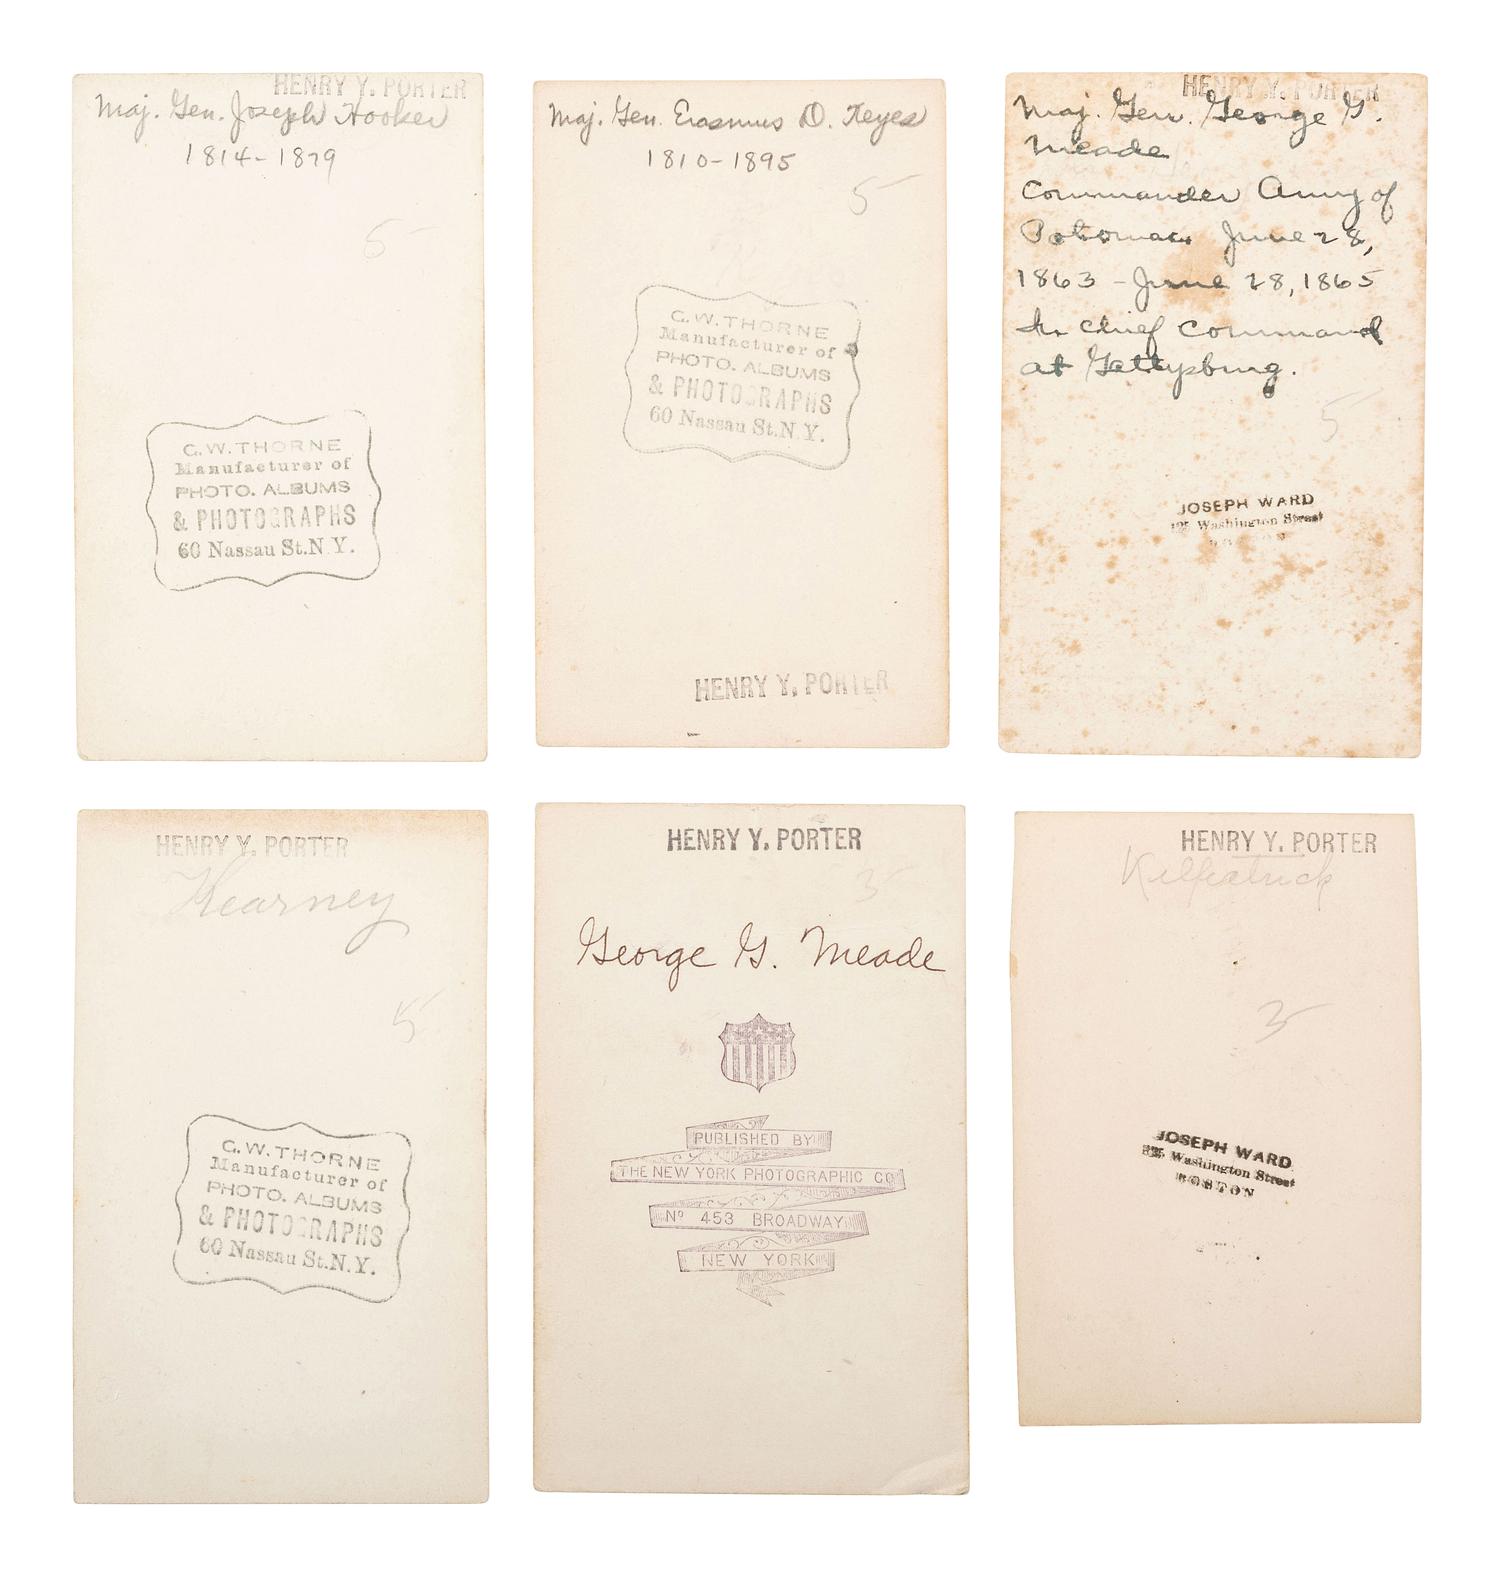 HENRY Y. PORTER
Maj. Gen. Joseph Hooker
1814-1879
5
G.W. THORNE
Manufacturer of
PHOTO. ALBUMS
& PHOTOGRAPHS
60 Nassau St.N.Y.
Maj. Gen. Erasmus D. Keyes
1810-1895
5
G.W. THORNE
Manufacturer of
PHOTO. ALBUMS
& PHOTOGRAPHS
60 Nassau St.N.Y.
HENRY Y. PORTER
HENRY Y. PORTER
Maj. Gen. George G.
Meade
Commander Army of
Potomac June 28,
1863 - June 28, 1865
In chief command
at Gettysburg.
5
JOSEPH WARD
125 Washington Street
BOSTON
HENRY Y. PORTER
Kearney
5
G.W. THORNE
Manufacturer of
PHOTO. ALBUMS
& PHOTOGRAPHS
60 Nassau St.N.Y.
HENRY Y. PORTER
George G. Meade
PUBLISHED BY
THE NEW YORK PHOTOGRAPHIC CO
No 453 BROADWAY
NEW YORK
HENRY Y. PORTER
Kilpatrick
JOSEPH WARD
Washington Street
BOSTON